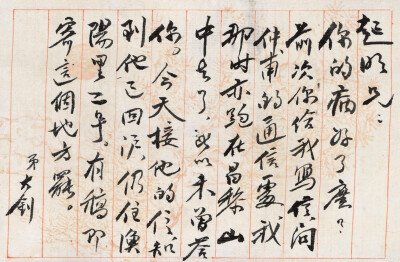 起明兄：
你的病好了麼？
前次你給我寫信問
仲甫的通信處，我
那時亦跑在昌黎山
中去了，所以未曾答
你。今天接他的信，知
到他已回滬，仍住漁
陽里二号。有稿可
寄這個地方罷。
弟大釗